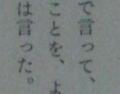 で言って、
ことを、よ
は言った。